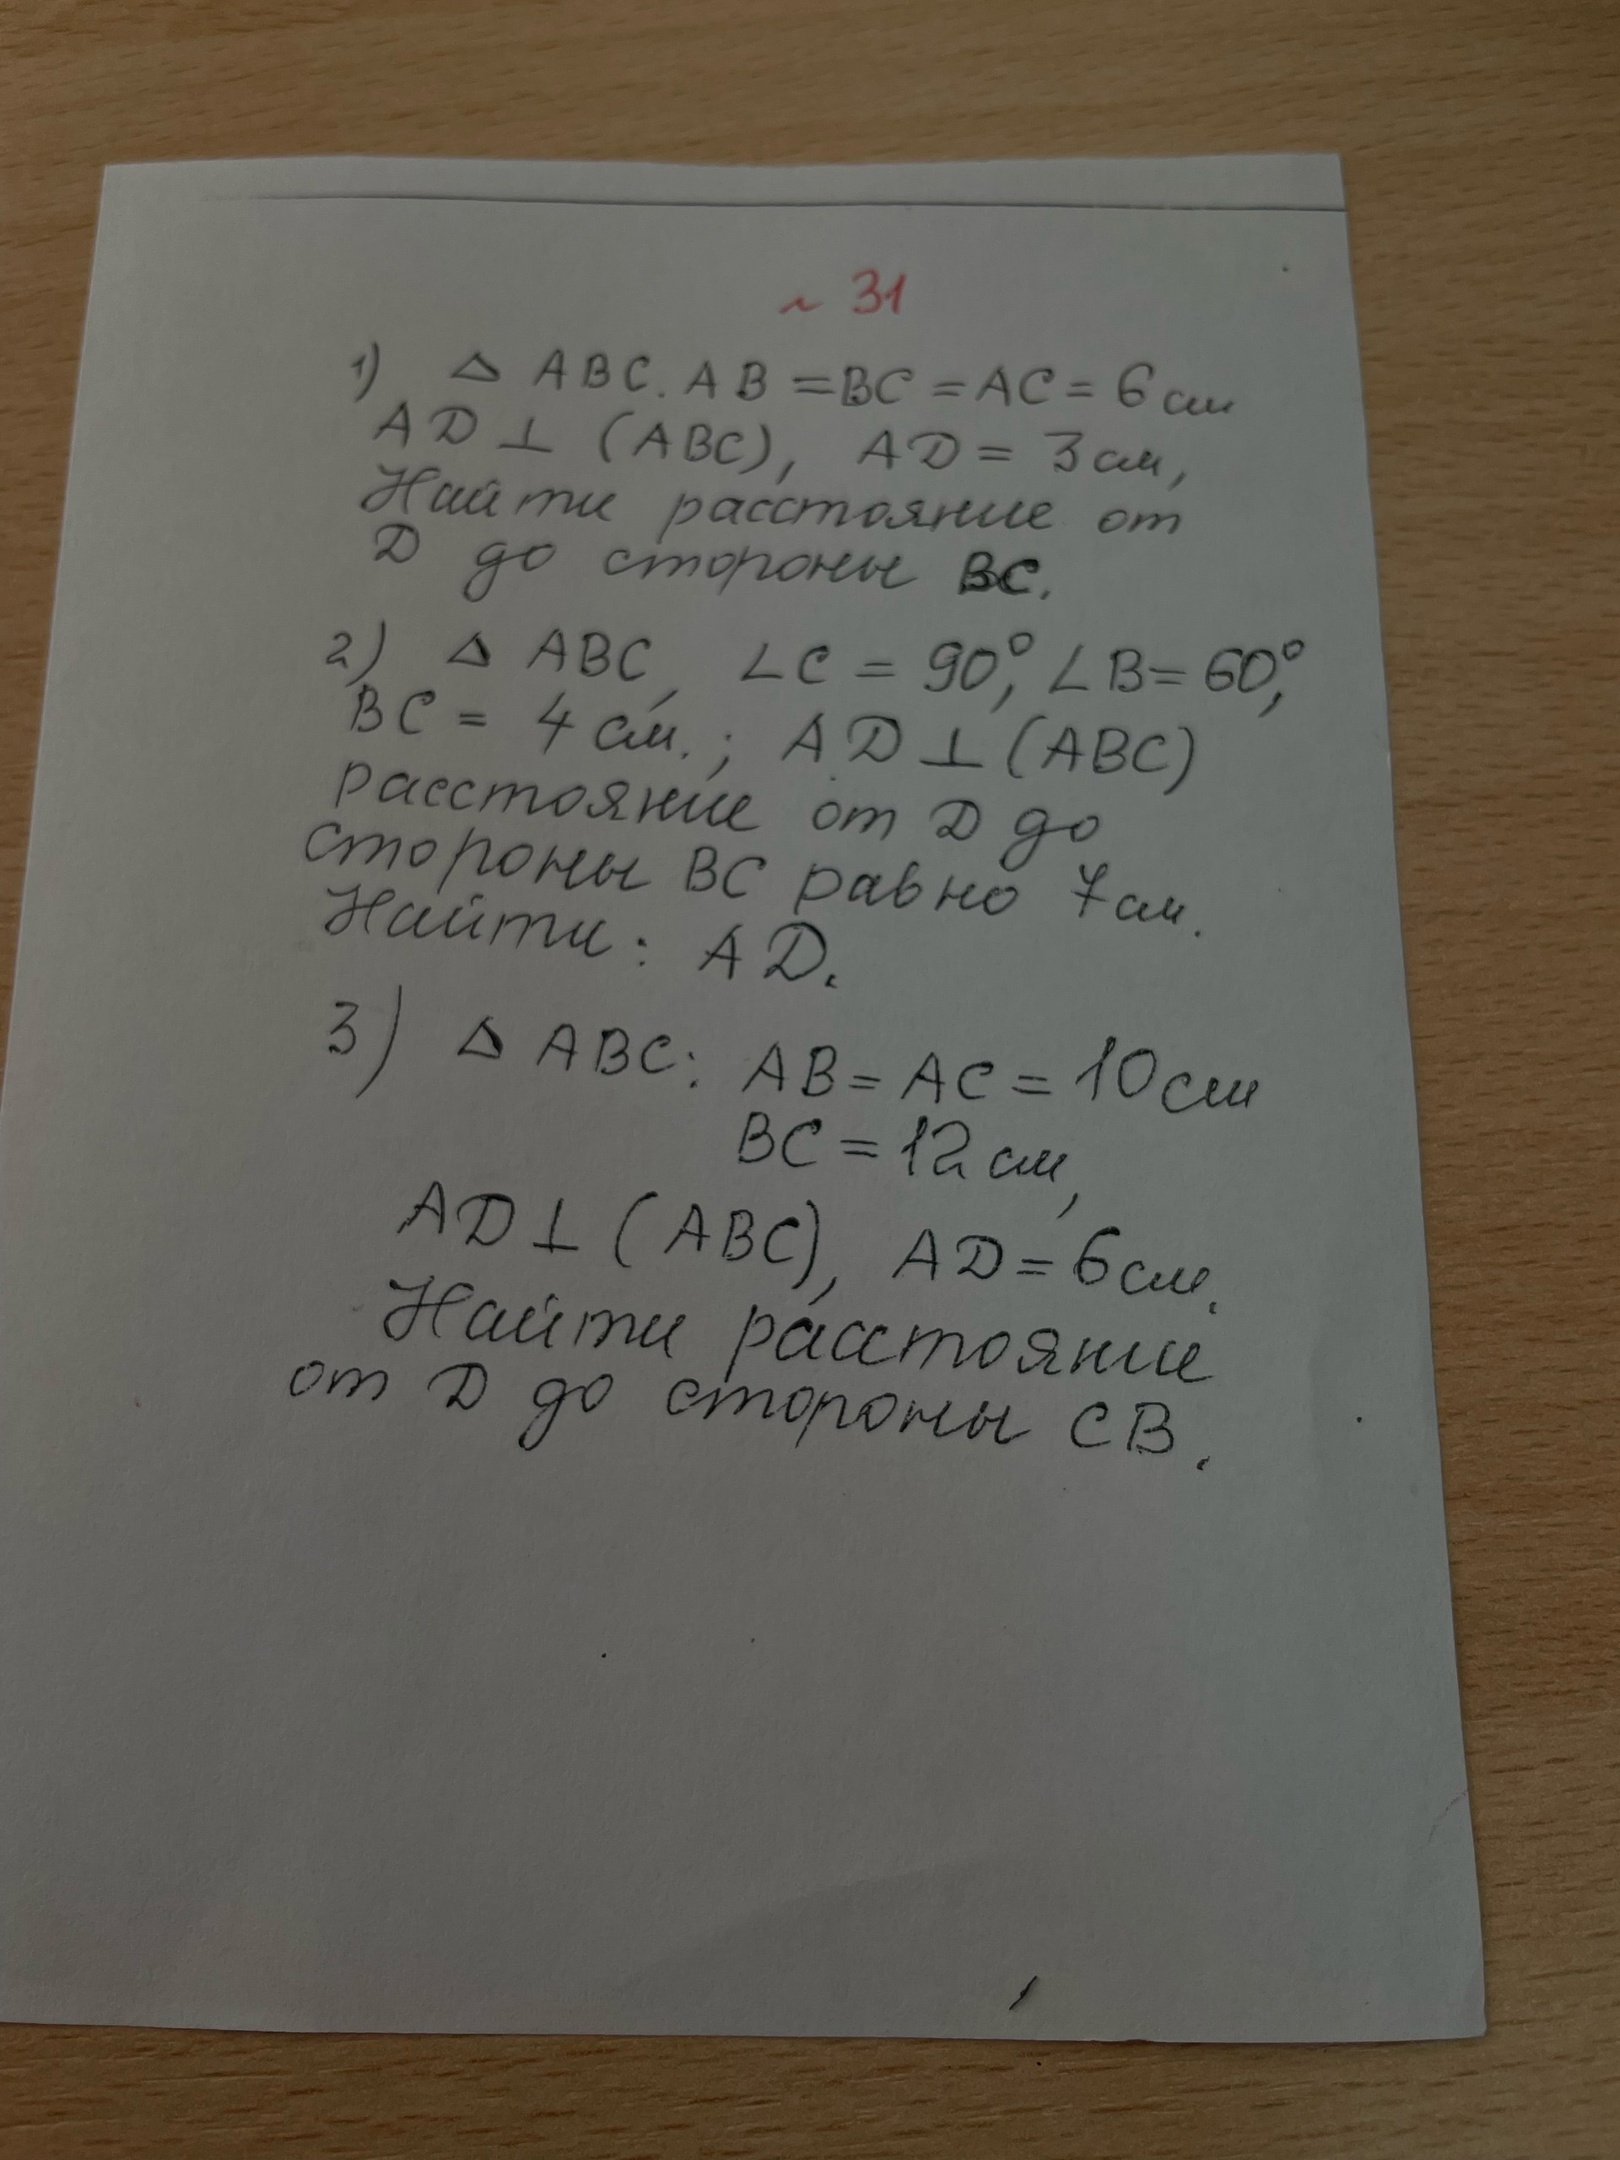 ~ 31
1) △ ABC. AB = BC = AC = 6 см
AD ⊥ (ABC), AD = 3 см,
Найти расстояние от
D до стороны BC.
2) △ ABC, ∠C = 90°, ∠B = 60°,
BC = 4 см.; AD ⊥ (ABC)
расстояние от D до
стороны BC равно 7 см.
Найти: AD.
3) △ ABC: AB = AC = 10 см
BC = 12 см,
AD ⊥ (ABC), AD = 6 см.
Найти расстояние
от D до стороны CB.